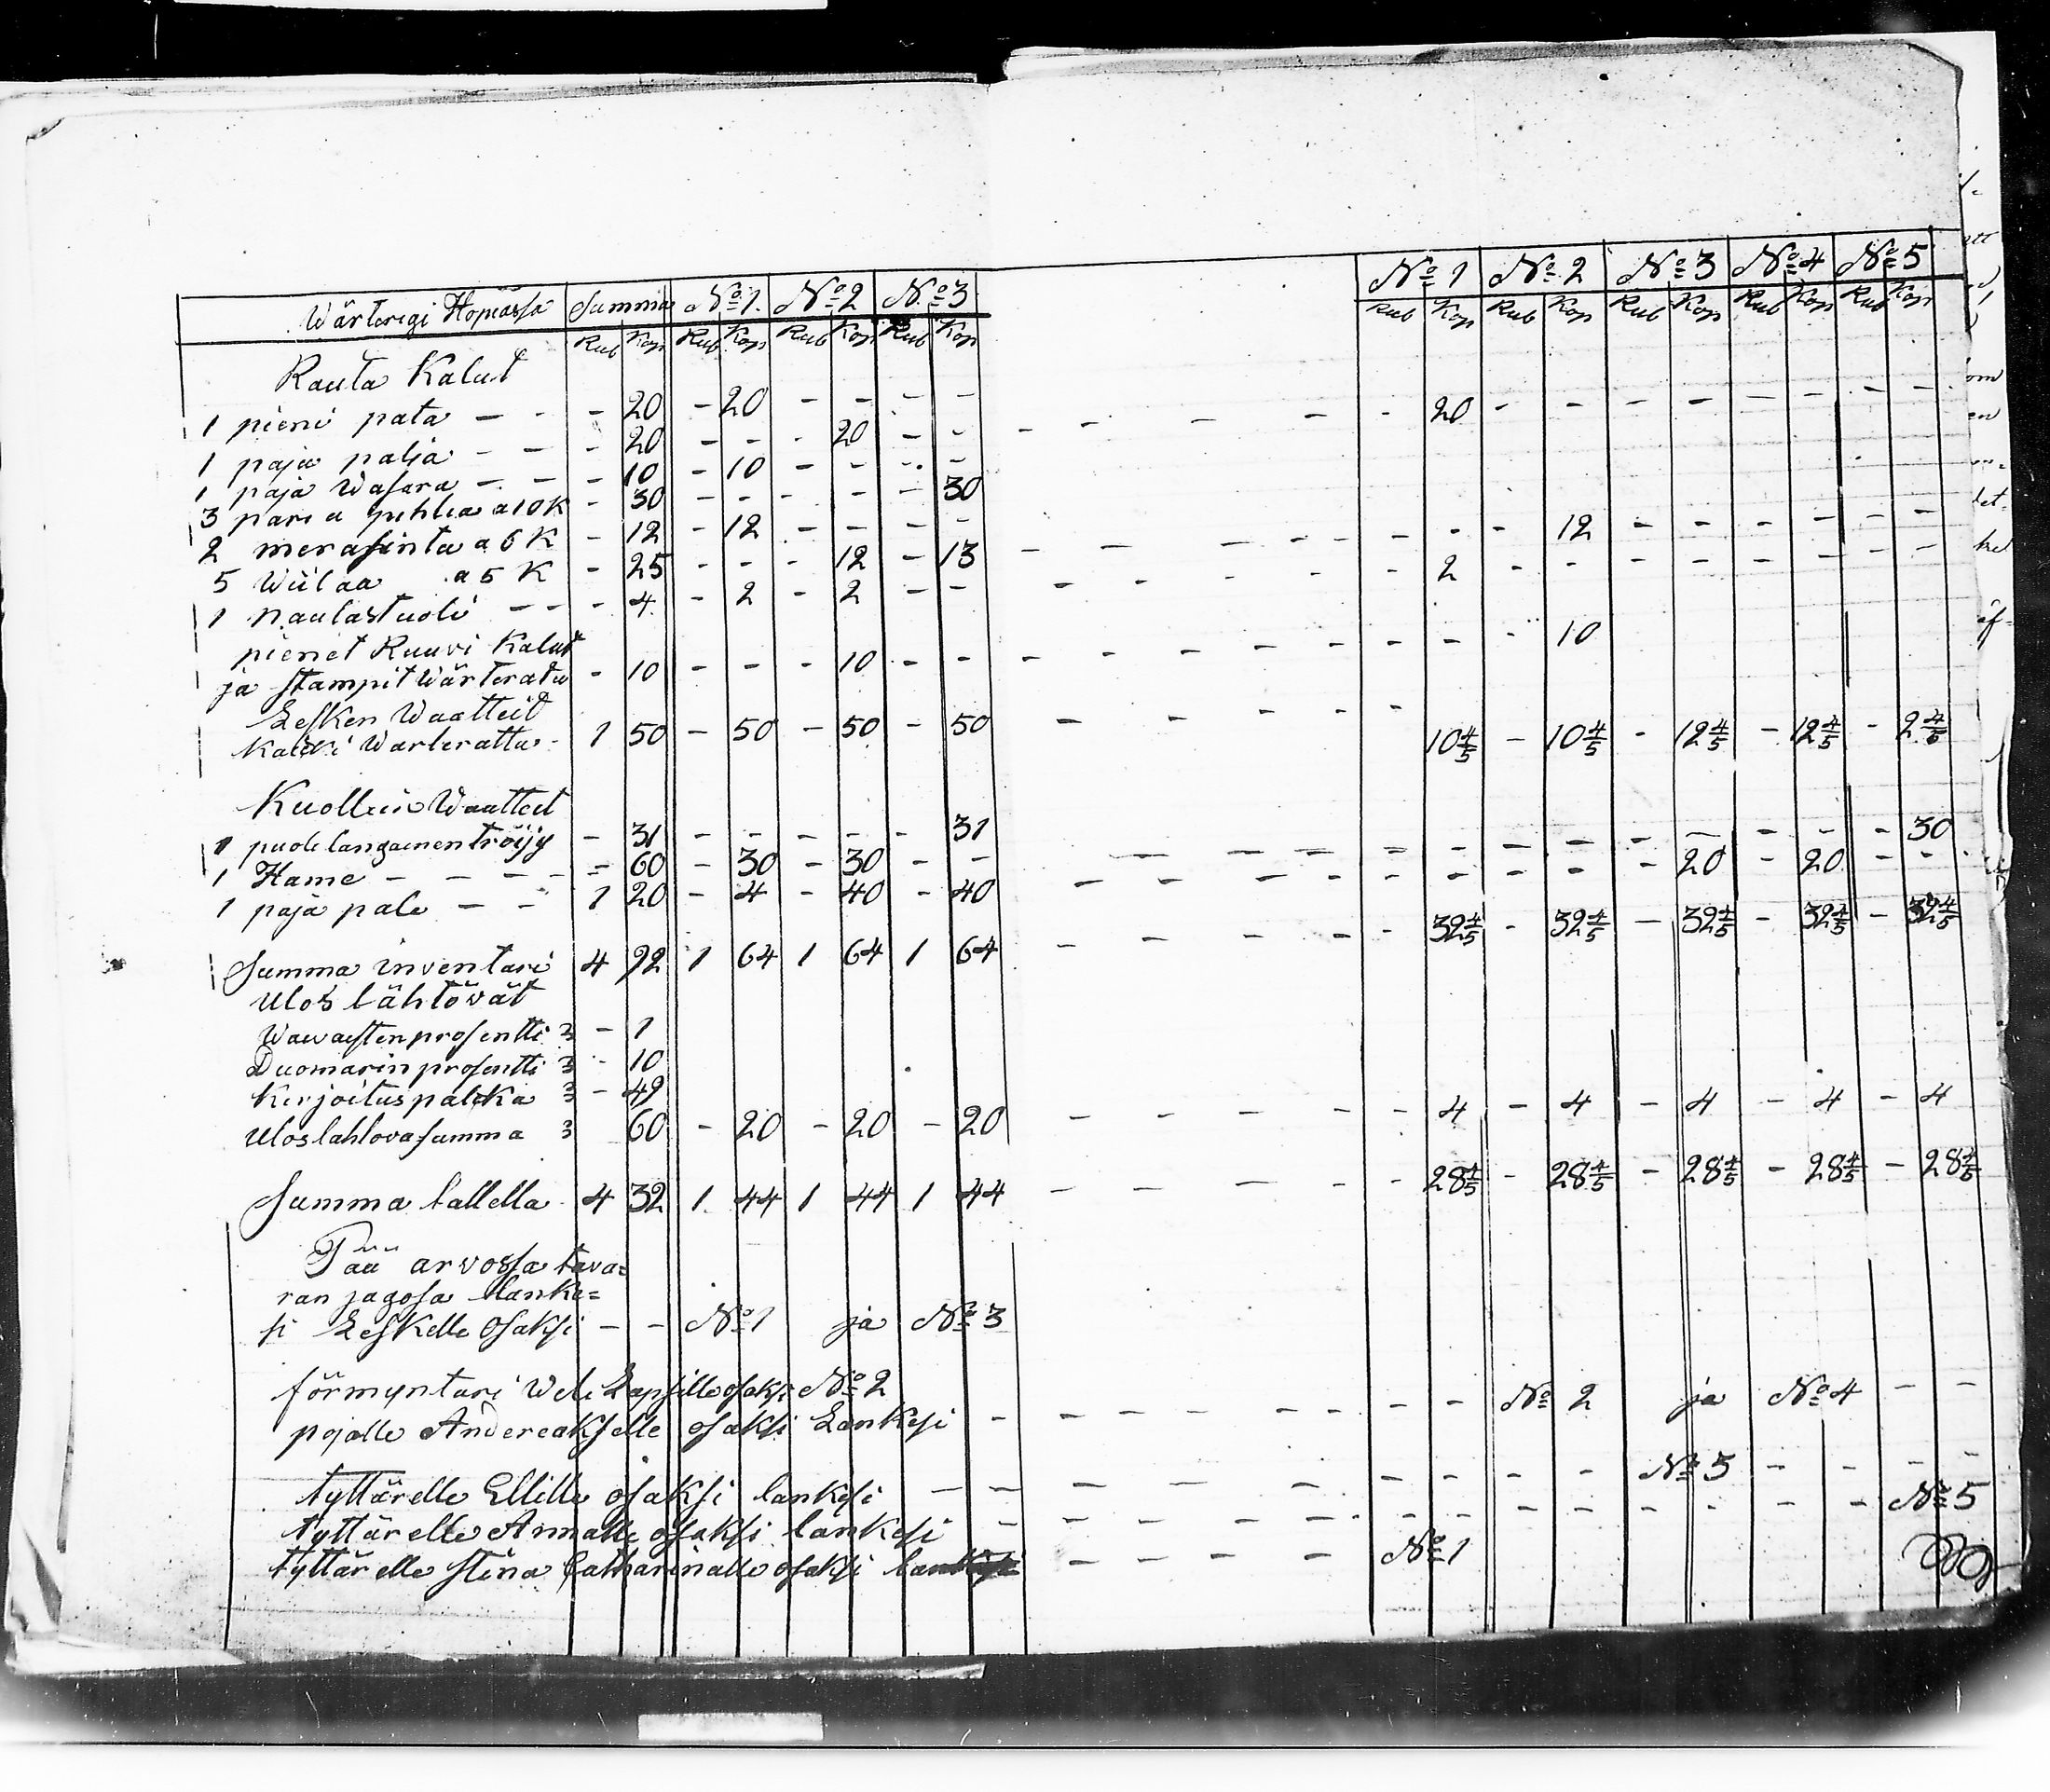 Wärteregi Hopiassa Summa No 1. No 2 No 3 No 1 No 2 No 3 No 4 No 5
Rub Kop Rub Kop Rub Kop Rub Kop Rub Kop Rub Kop Rub Kop Rub Kop Rub Kop
Rauta Kalut
1 pieni pata — - - 20 - 20 - - - - - - - - - 20 - - - - - - - -
1 paja palja - - - 20 - - - 20 - -
1 paja Wasara - - - 10 - 10 - - - -
3 paria pihtia a 10 K - 30 - - - - - 30
2 merasinta a 6 K - 12 - 12 - - - - - - - - - - - 12 - - - - - -
5 Wiilaa a 5 K - 25 - - - 12 - 13 - - - - - 2 - - - - - - - -
1 naulastuoli - - - 4 - 2 - 2 - -
pienet Ruuvi Kalut
ja stampit Wärterattu - 10 - - - 10 - - - - - - - - - - 10
Lesken Waatteid
Kaicki Warterattu - 1 50 - 50 - 50 - 50 - - - - - 10 4/5 - 10 4/5 - 12 4/5 - 12 4/5 - 2 4/5
Kuolluin Waatteet
1 puolilangainen tröijy - 31 - - - - - 31 - - - - - - - - - - - - - 30
1 Hame - - - - - 60 - 30 - 30 - - - - - - - - - - - 20 - 20 - -
1 paja pale - - 1 20 - 4 - 40 - 40 - - - - - 32 4/5 - 32 4/5 - 32 4/5 - 32 4/5 - 32 4/5
Summa inventari 4 92 1 64 1 64 1 64
Ulos lähtövät
Wawasten prosentti 3 - 1
Duomarin prosentti 3 - 10
Kirjoitus palcka 3 - 49
Ulos lahtova summa 3 60 - 20 - 20 - 20 - - - - - 4 - 4 - 4 - 4 - 4
Summa tallella 4 32 1 44 1 44 1 44 - - - - - 28 4/5 - 28 4/5 - 28 4/5 - 28 4/5 - 28 4/5
Pää arvossa tava=
ran jagosa lanke=
si Leskelle Osaksi - - No 1 ja No 3
förmyntari Weli Lapsille osaksi No 2
pojalle Andereakselle osaksi Lankesi - - - - - - - - No 2 ja No 4 - -
tyttärelle Ellille osaksi lankesi - - - - - - - - - No 3 - - - -
tyttärelle Annalle osaksi lankesi - - - - - - - - - - - - - No 5
tyttärelle Stina Catharinalle osaksi lankesi - - - - - No 1